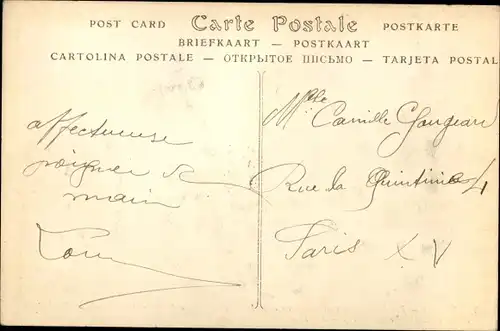 POST CARD Carte Postale POSTKARTE
BRIEFKAART — POSTKAART
CARTOLINA POSTALE — ОТКРЫТОЕ ПИСЬМО — TARJETA POSTAL
affectueuse
poignée de
main
Mlle Camille
Rue la Quintinie
Paris XV